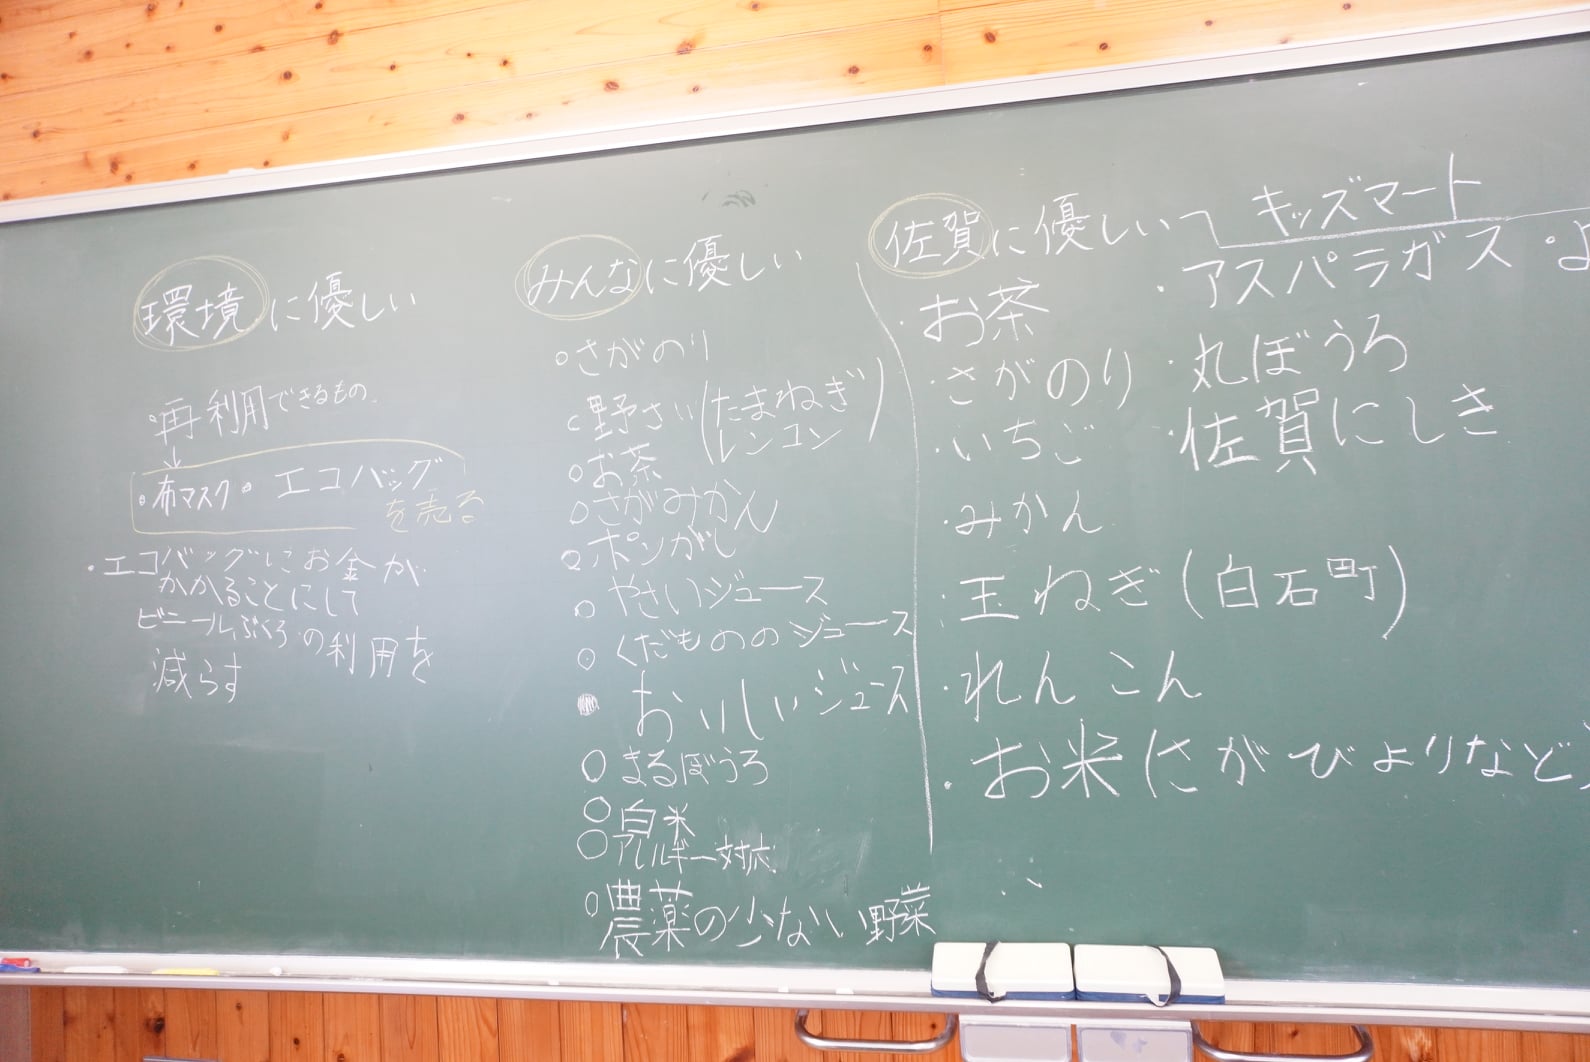 環境に優しい
・再利用できるもの
・布マスク・エコバッグ
を売る
・エコバッグにお金が
かかることにして
ビニールぶくろの利用を
減らす
みんなに優しい
○さがのり
○野さい(たまねぎ
レンコン)
○お茶
○さがみかん
○ポンがし
○やさいジュース
○くだもののジュース
●おいしいジュース
○まるぼうろ
○白米
○アレルギー対応
○農薬の少ない野菜
佐賀に優しい
キッズマート
・お茶
・さがのり
・いちご
・みかん
・玉ねぎ(白石町)
・れんこん
・お米(さがびよりなど)
・アスパラガス
・丸ぼうろ
・佐賀にしき